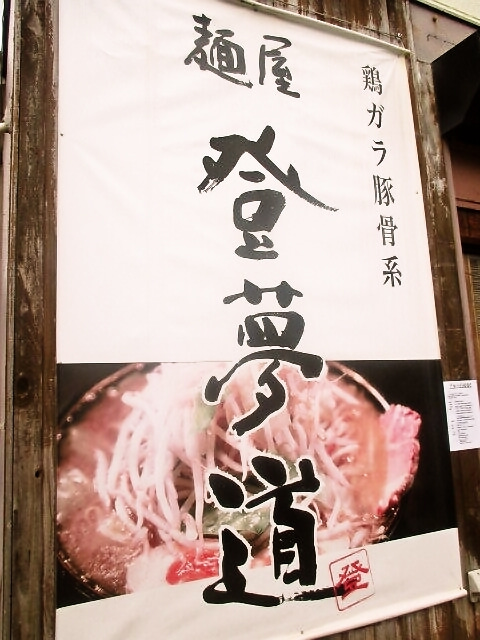 鶏ガラ豚骨系
麺屋
登夢道
登